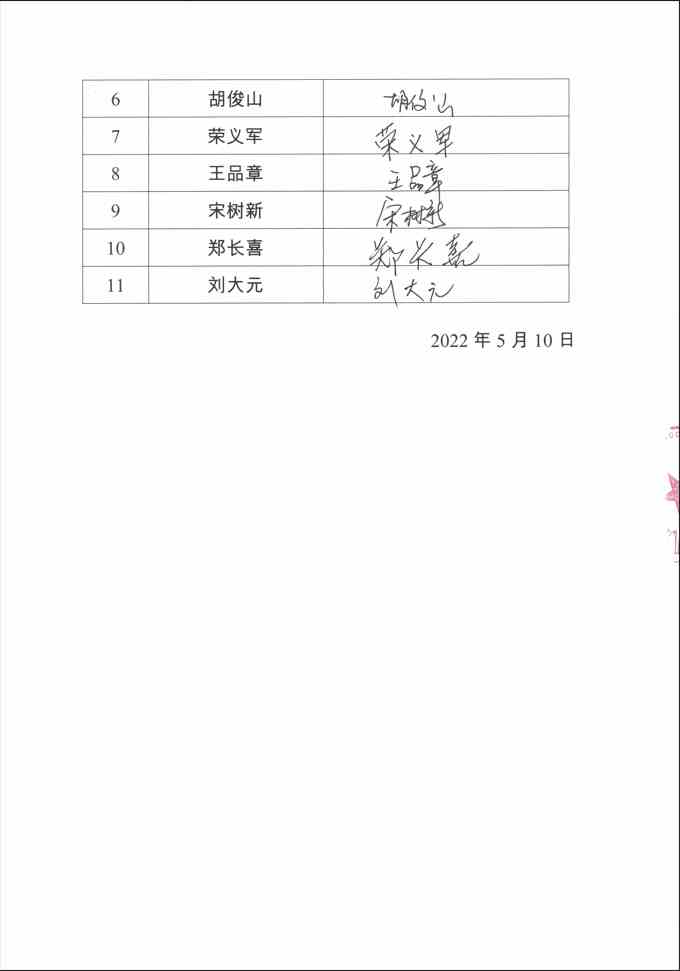 6 胡俊山 胡俊山
7 荣义军 荣义军
8 王品章 王品章
9 宋树新 宋树新
10 郑长喜 郑长喜
11 刘大元 刘大元
2022 年 5 月 10 日